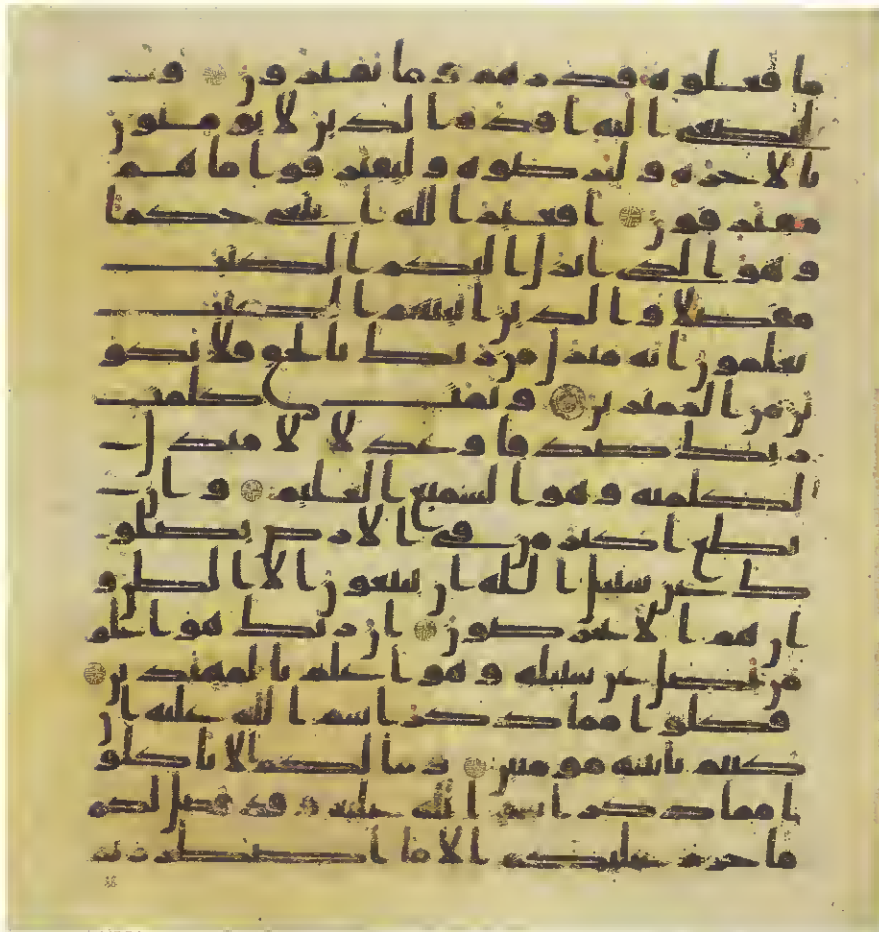 ما فعلوه فذرهم وما يفترون و
لتصغى اليه افده الذين لا يومنون
بالاخره وليرضوه وليقترفوا ما هم
مقترفون افغير الله ابتغى حكما
وهو الذى انزل اليكم الكتب
مفصلا والذين اتينهم الكتب
يعلمون انه منزل من ربك بالحق فلا تكو
نن من الممترين وتمت كلمت
ربك صدقا وعدلا لا مبدل
لكلمته وهو السميع العليم وان
تطع اكثر من فى الارض يضلو
ك عن سبيل الله ان يتبعون الا الظن و
ان هم الا يخرصون ان ربك هو اعلم
من يضل عن سبيله وهو اعلم بالمهتدين
فكلوا مما ذكر اسم الله عليه ان
كنتم بايته مومنين وما لكم الا تاكلو
ا مما ذكر اسم الله عليه وقد فصل لكم
ما حرم عليكم الا ما اضطررتم